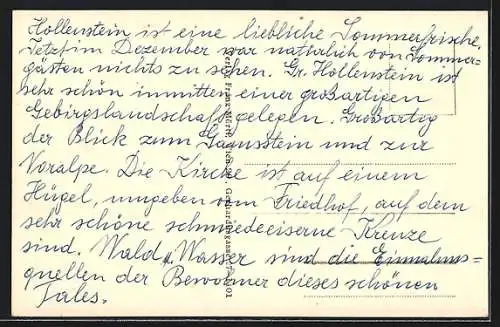 Hollenstein ist eine liebliche Sommerfrische.
Jetzt im Dezember war natürlich von Sommer-
gästen nichts zu sehen. Gr. Hollenstein ist
sehr schön inmitten einer großartigen
Gebirgslandschaft gelegen. Großartig
der Blick zum Gamsstein und zur
Voralpe. Die Kirche ist auf einem
Hügel, umgeben vom Friedhof, auf dem
sehr schöne schmiedeeiserne Kreuze
sind. Wald u. Wasser sind die Einnahms-
quellen der Bewohner dieses schönen
Tales.
Verlag Franz Mörtl, Wien